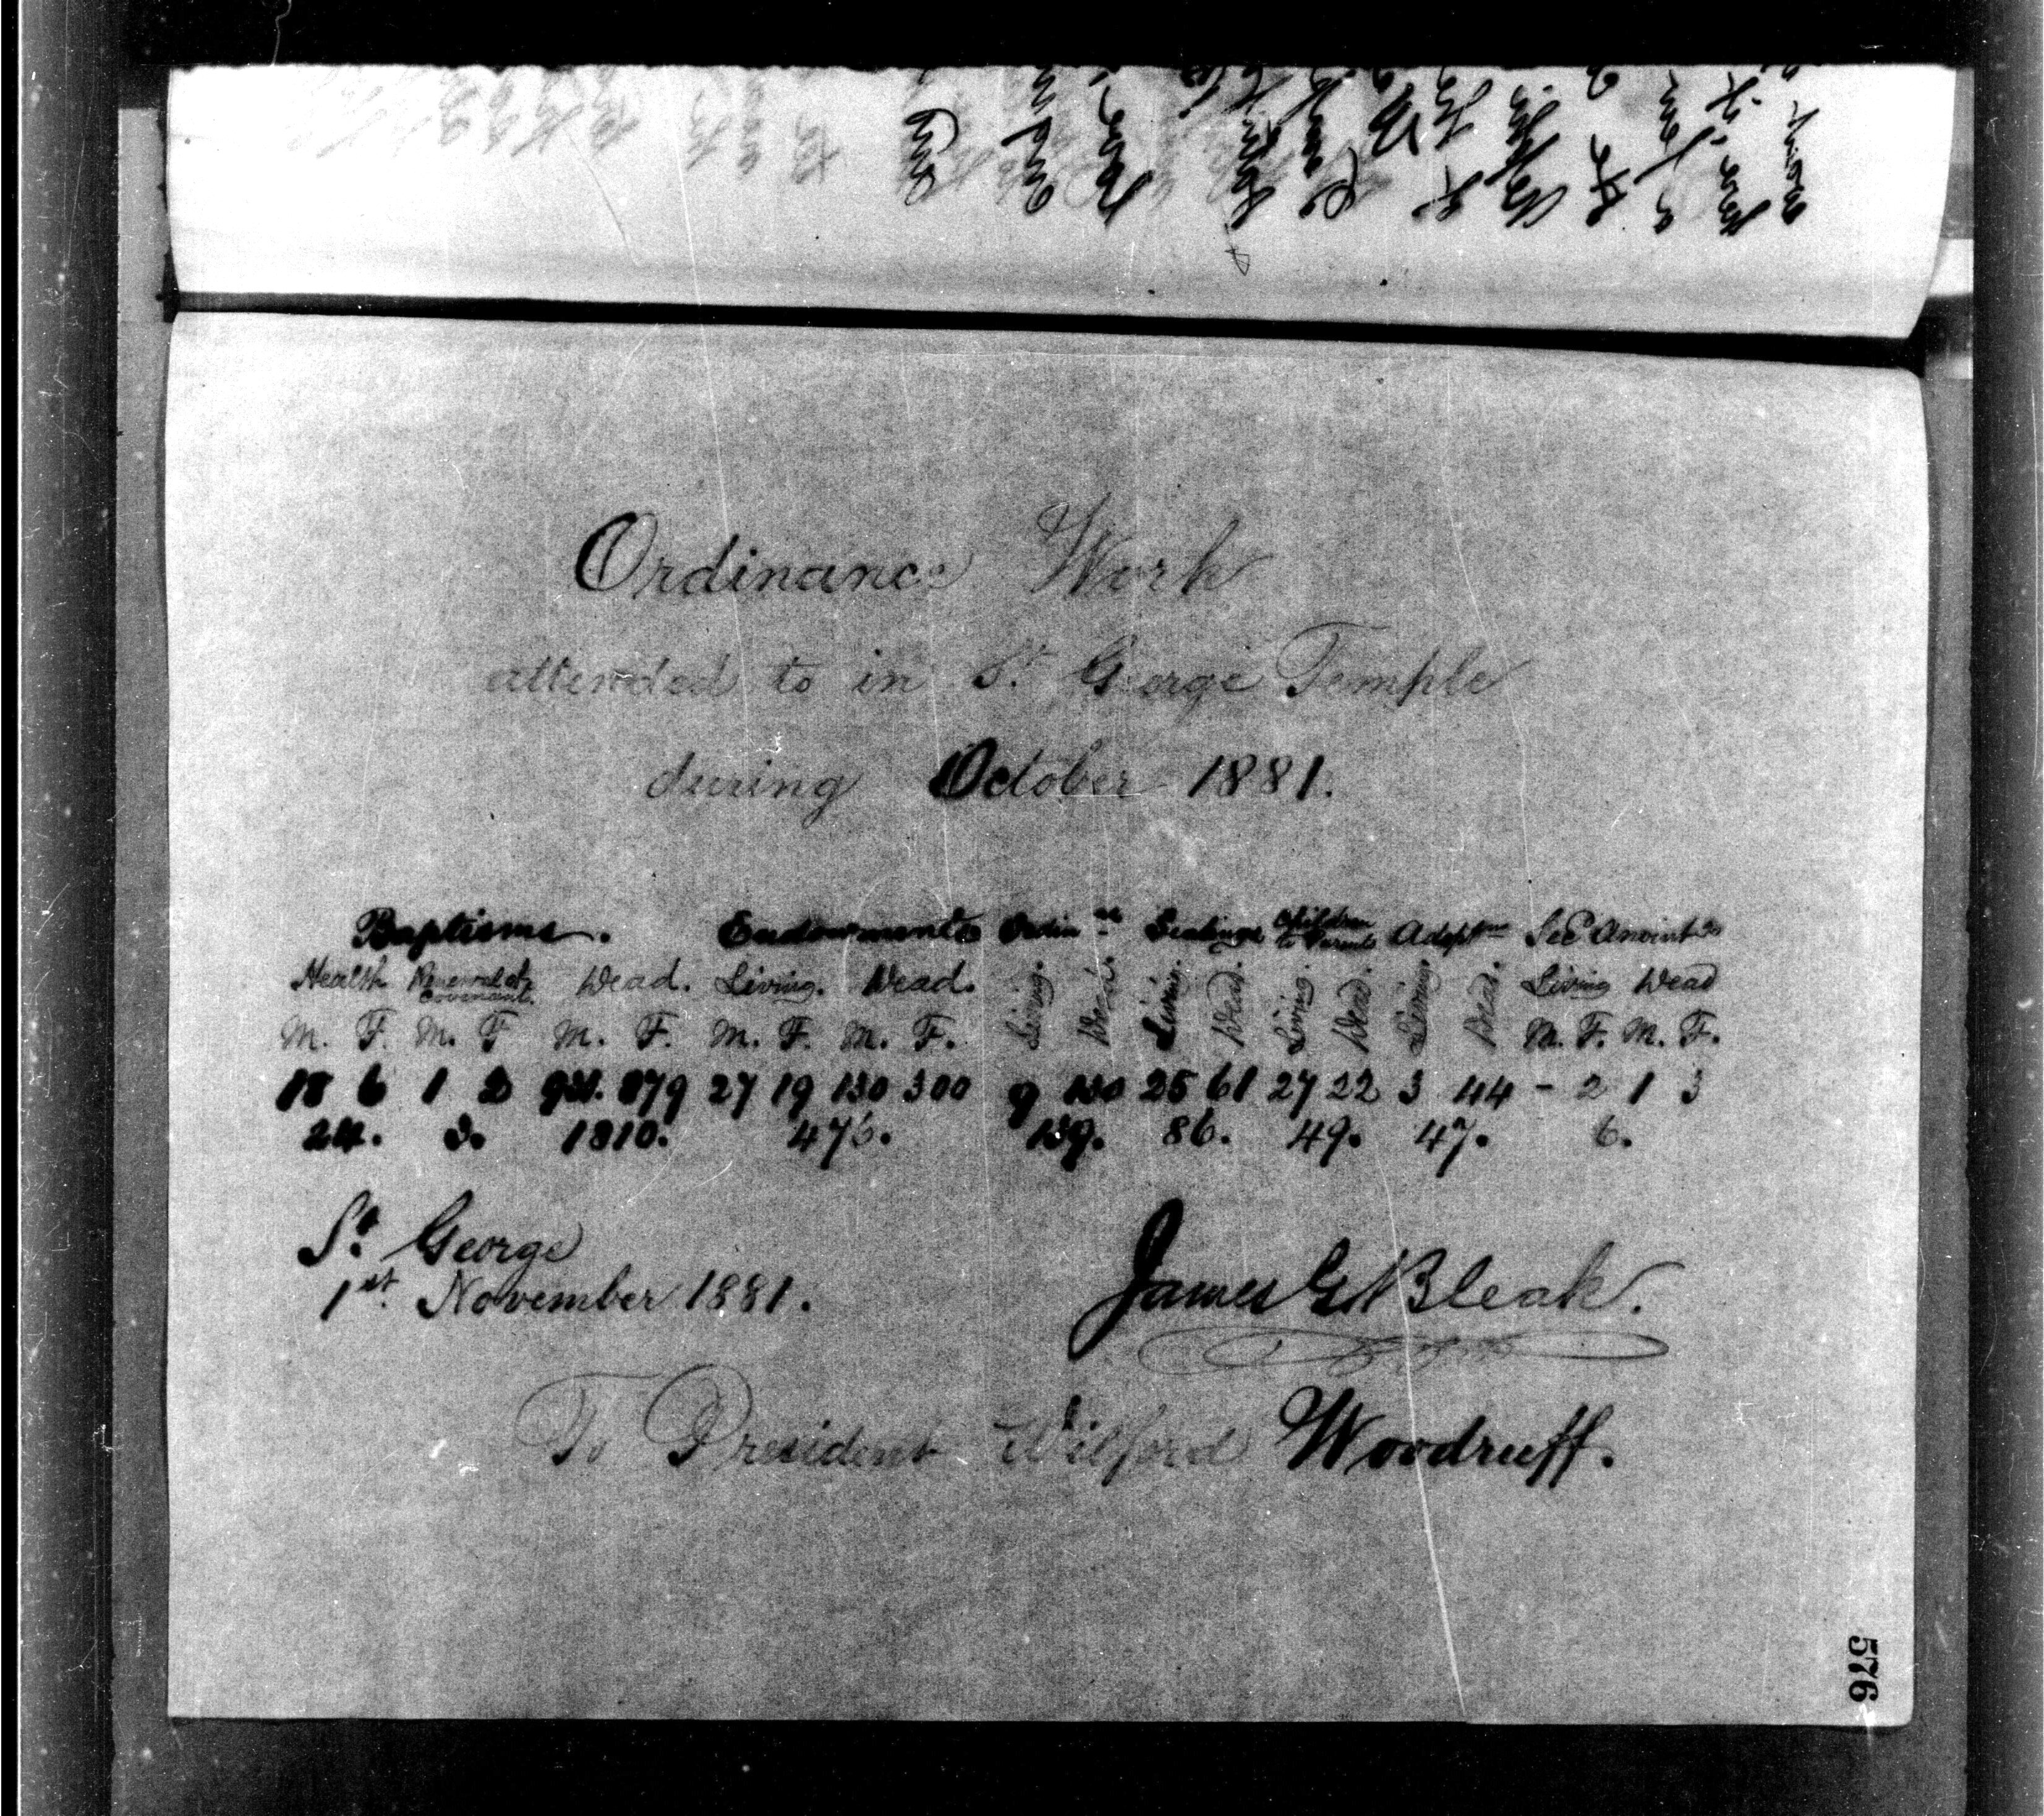 Ordinance Work
attended to in St. George Temple
during October 1881.
Baptisms. Endowments Ordin.ns Sealings Children to Parents Adopt.ns Sec.d Anoint.gs
Health Renewal of Covenant. Dead. Living. Dead. Living. Dead. Living. Dead. Living. Dead. Living. Dead. Living Dead
M. F. M. F M. F. M. F. M. F. M. F. M. F.
18 6 1 2 931. 879 27 19 130 300 9 130 25 61 27 22 3 44 - 2 1 3
24. 3. 1810. 476. 139. 86. 49. 47. 6.
St. George
1st. November 1881.
James G Bleak.
To President Wilford Woodruff.
576